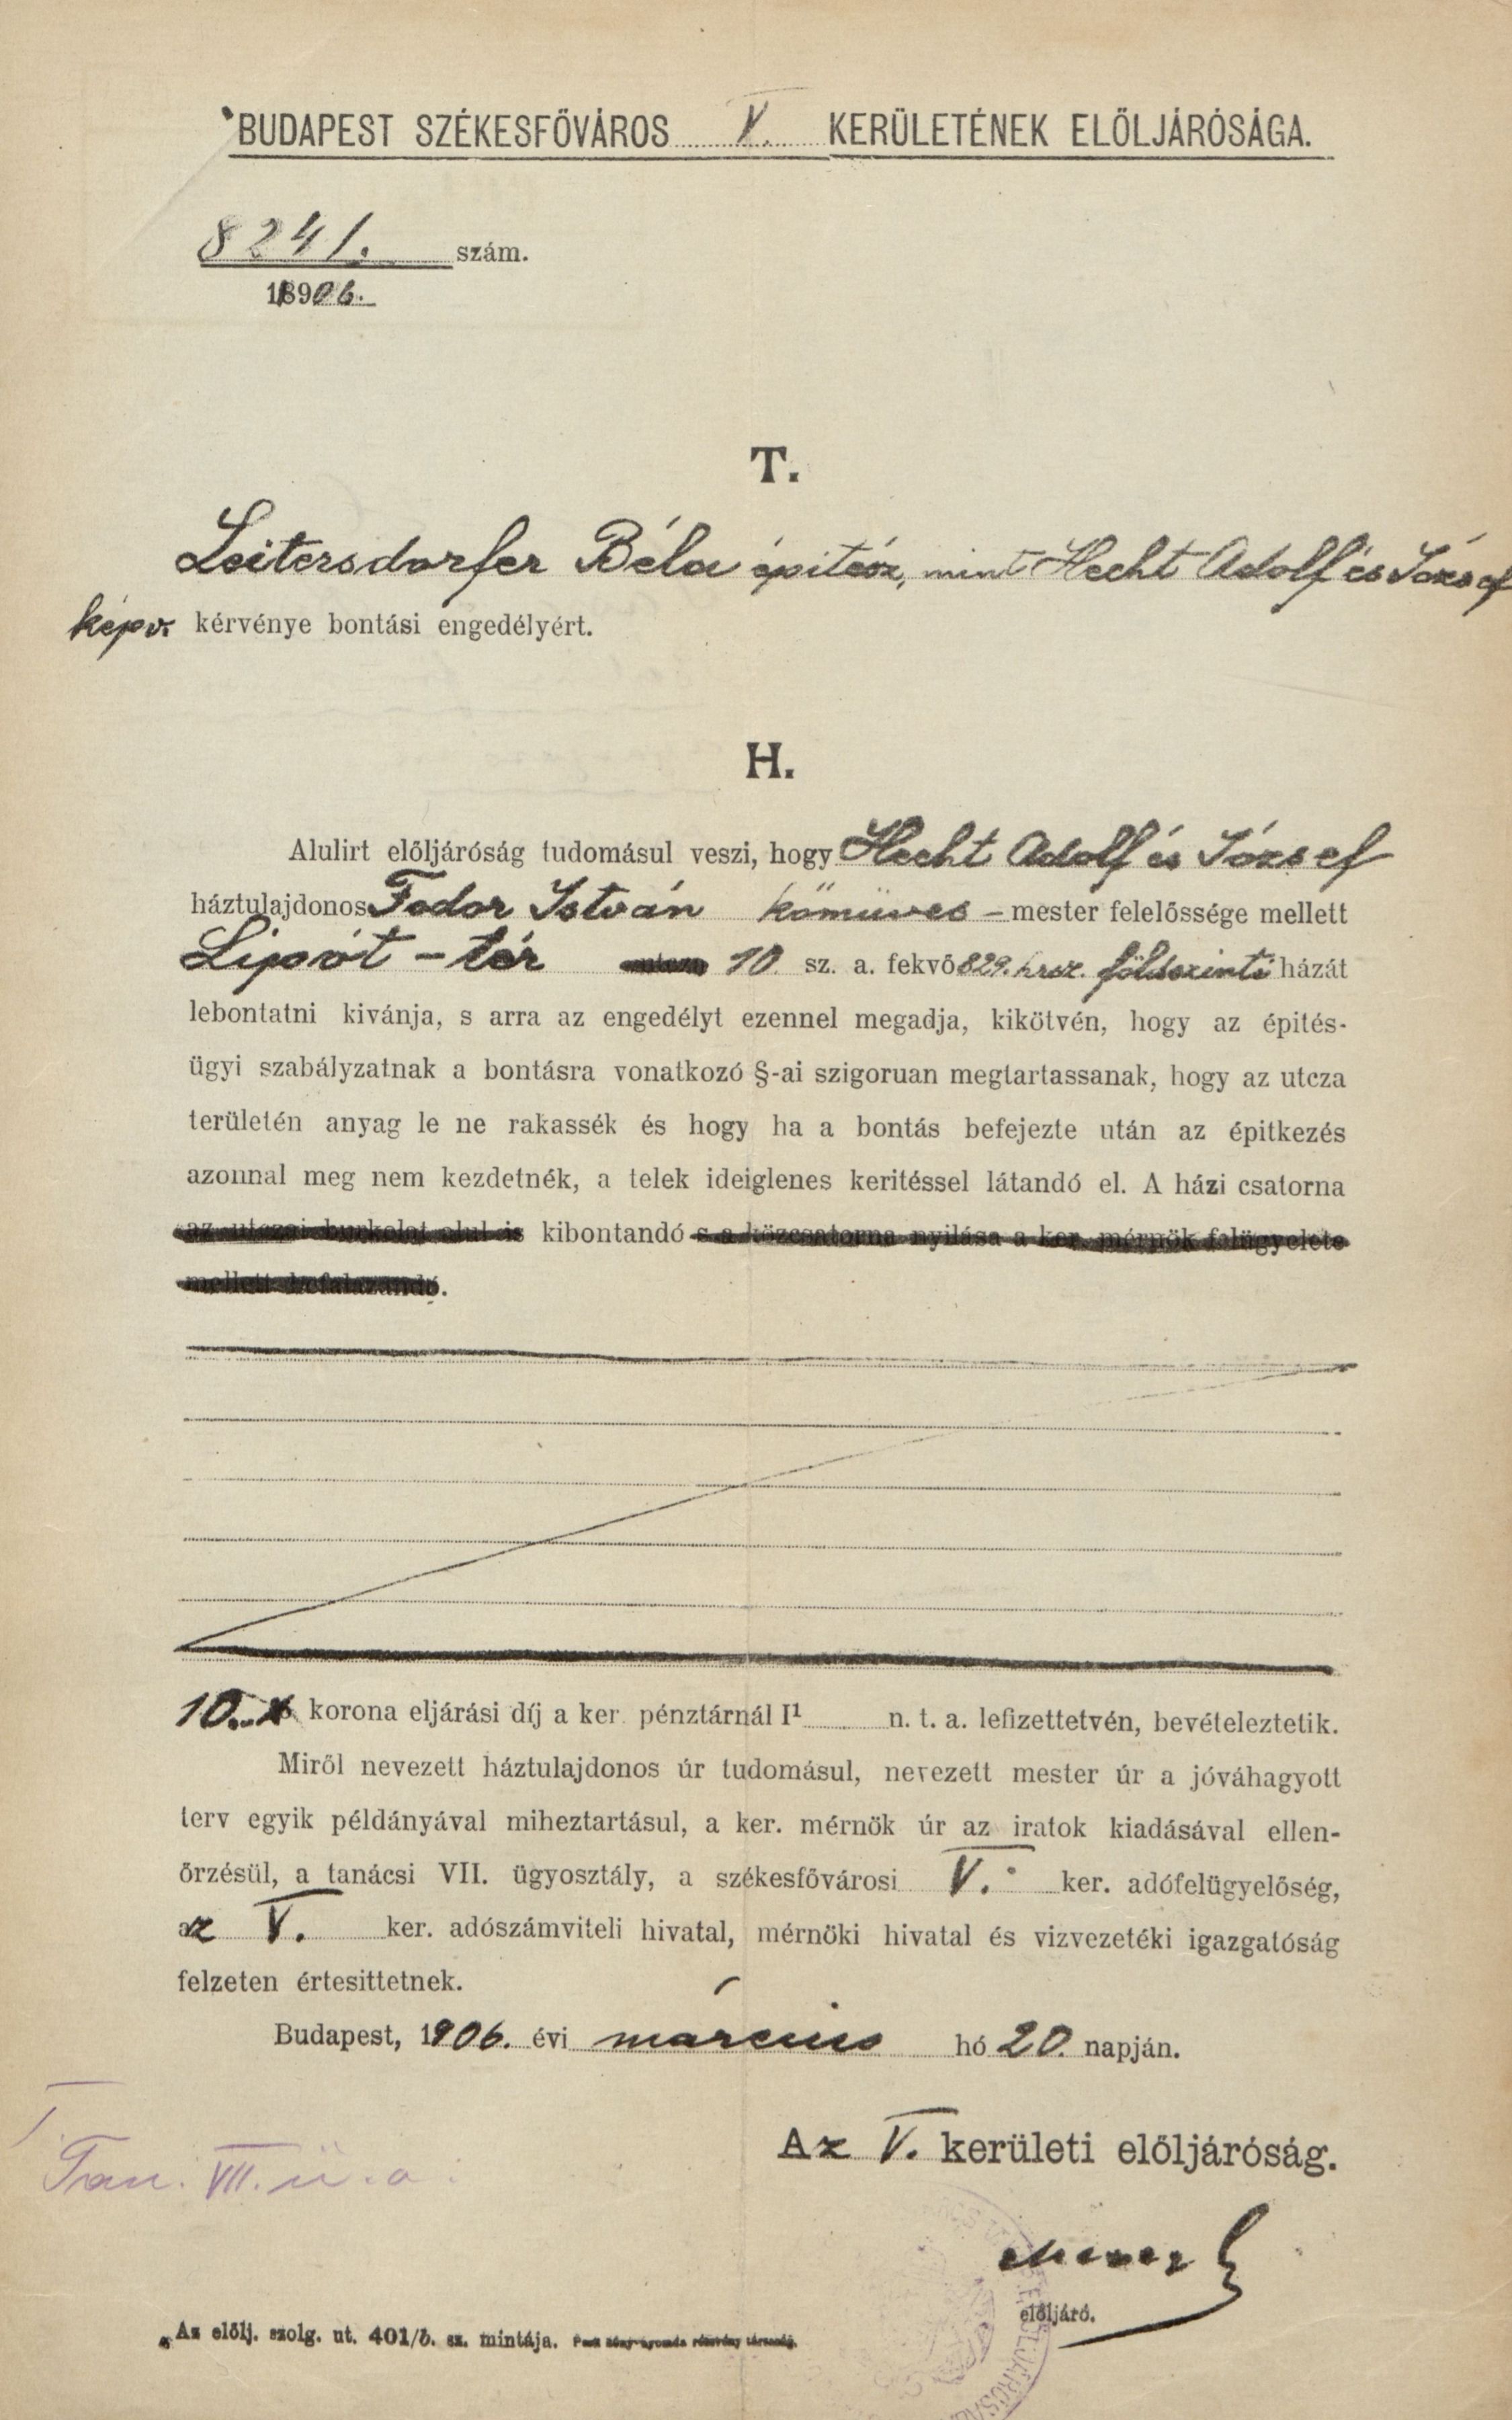 BUDAPEST SZÉKESFŐVÁROS V. KERÜLETÉNEK ELŐLJÁRÓSÁGA.
8241. szám.
1906.
T.
Leitersdorfer Béla épitész, mint Hecht Adolf és József
képv. kérvénye bontási engedélyért.
H.
Alulirt előljáróság tudomásul veszi, hogy Hecht Adolf és József
háztulajdonos Fodor István kőmüves - mester felelőssége mellett
Lipót - tér 10. sz. a. fekvő 829. hrsz. földszinti házát
lebontatni kivánja, s arra az engedélyt ezennel megadja, kikötvén, hogy az épités-
ügyi szabályzatnak a bontásra vonatkozó §-ai szigoruan megtartassanak, hogy az utcza
területén anyag le ne rakassék és hogy ha a bontás befejezte után az épitkezés
azonnal meg nem kezdetnék, a telek ideiglenes keritéssel látandó el. A házi csatorna
az utczai burkolat alul is kibontandó s a közcsatorna nyilása a ker. mérnök felügyelete
mellett befalazandó.
10. korona eljárási díj a ker. pénztárnál I¹ n. t. a. lefizettetvén, bevételeztetik.
Miről nevezett háztulajdonos úr tudomásul, nevezett mester úr a jóváhagyott
terv egyik példányával miheztartásul, a ker. mérnök úr az iratok kiadásával ellen-
őrzésül, a tanácsi VII. ügyosztály, a székesfővárosi V. ker. adófelügyelőség,
az V. ker. adószámviteli hivatal, mérnöki hivatal és vizvezetéki igazgatóság
felzeten értesittetnek.
Budapest, 1906. évi március hó 20. napján.
Az V. kerületi előljáróság.
Tan. VII. ü. o.
előljáró.
Az előlj. szolg. ut. 401/b. sz. mintája.